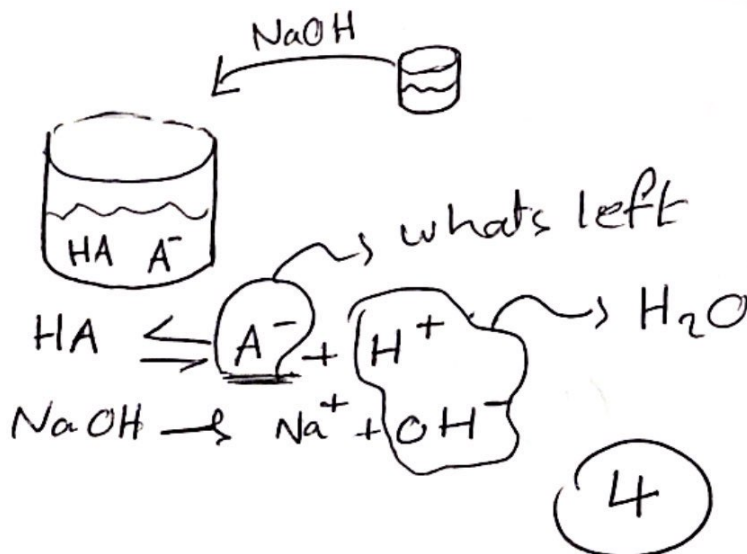 NaOH
HA A⁻
whats left
HA ⇌ A⁻ + H⁺
H₂O
NaOH → Na⁺ + OH⁻
4